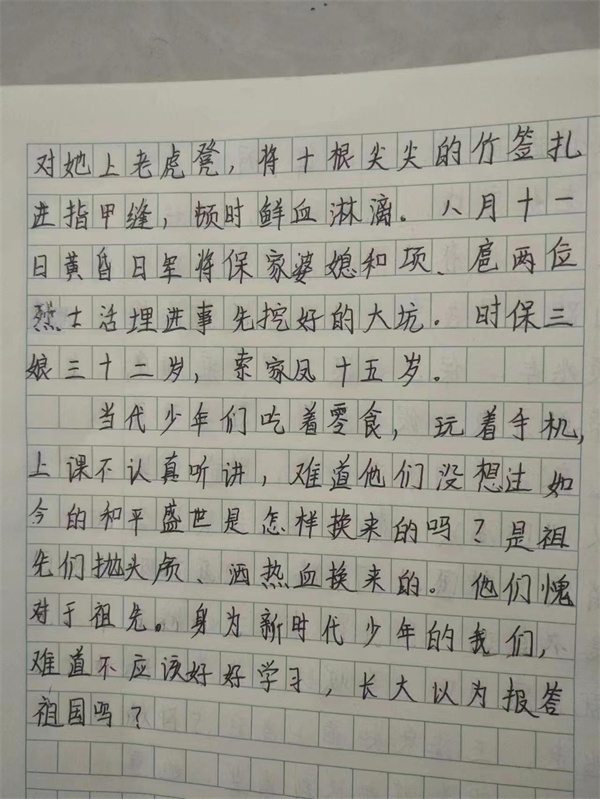 对她上老虎凳，将十根尖尖的竹签扎
进指甲缝，顿时鲜血淋漓。八月十一
日黄昏日军将保家婆媳和项、扈两位
烈士活埋进事先挖好的大坑．时保三
娘三十二岁，索家凤十五岁．
当代少年们吃着零食，玩着手机，
上课不认真听讲，难道他们没想过如
今的和平盛世是怎样换来的吗？是祖
先们抛头颅、洒热血换来的。他们愧
对于祖先。身为新时代少年的我们，
难道不应该好好学习，长大以为报答
祖国吗？